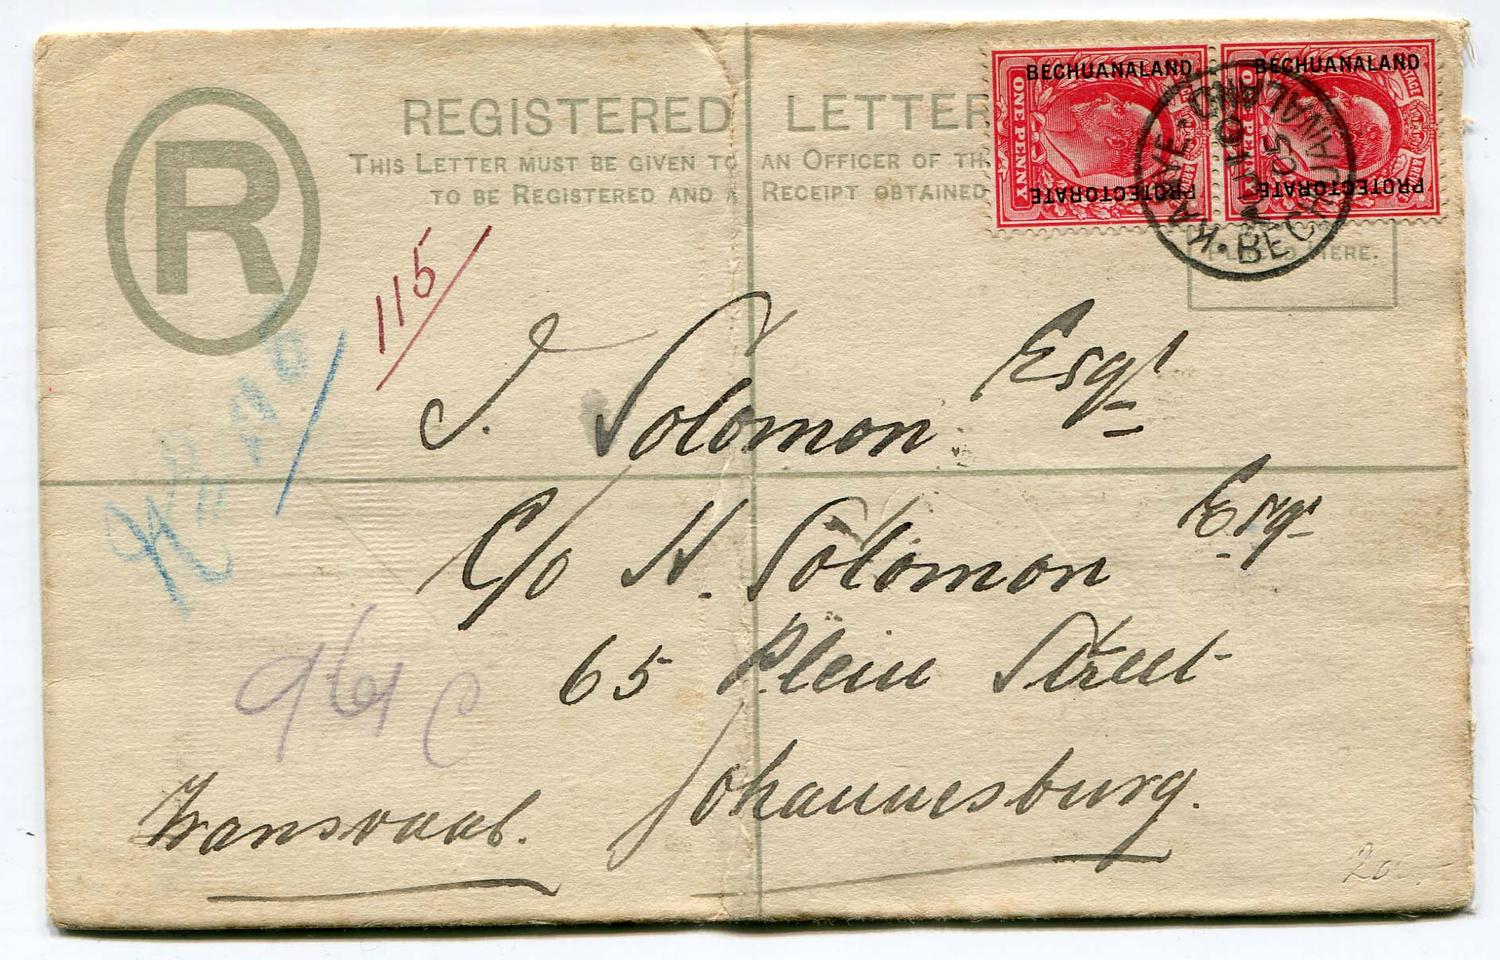 R
REGISTERED LETTER
THIS LETTER MUST BE GIVEN TO AN OFFICER OF TH
TO BE REGISTERED AND A RECEIPT OBTAINED
BECHUANALAND
ONE PENNY
PROTECTORATE
BECHUANALAND
POSTAGE
PROTECTORATE
KANYE · BECHUANALAND
05
HERE.
115/
J. Solomon Esqr
C/o H. Solomon Esqr
65 Plein Street
Johannesburg.
Transvaal.